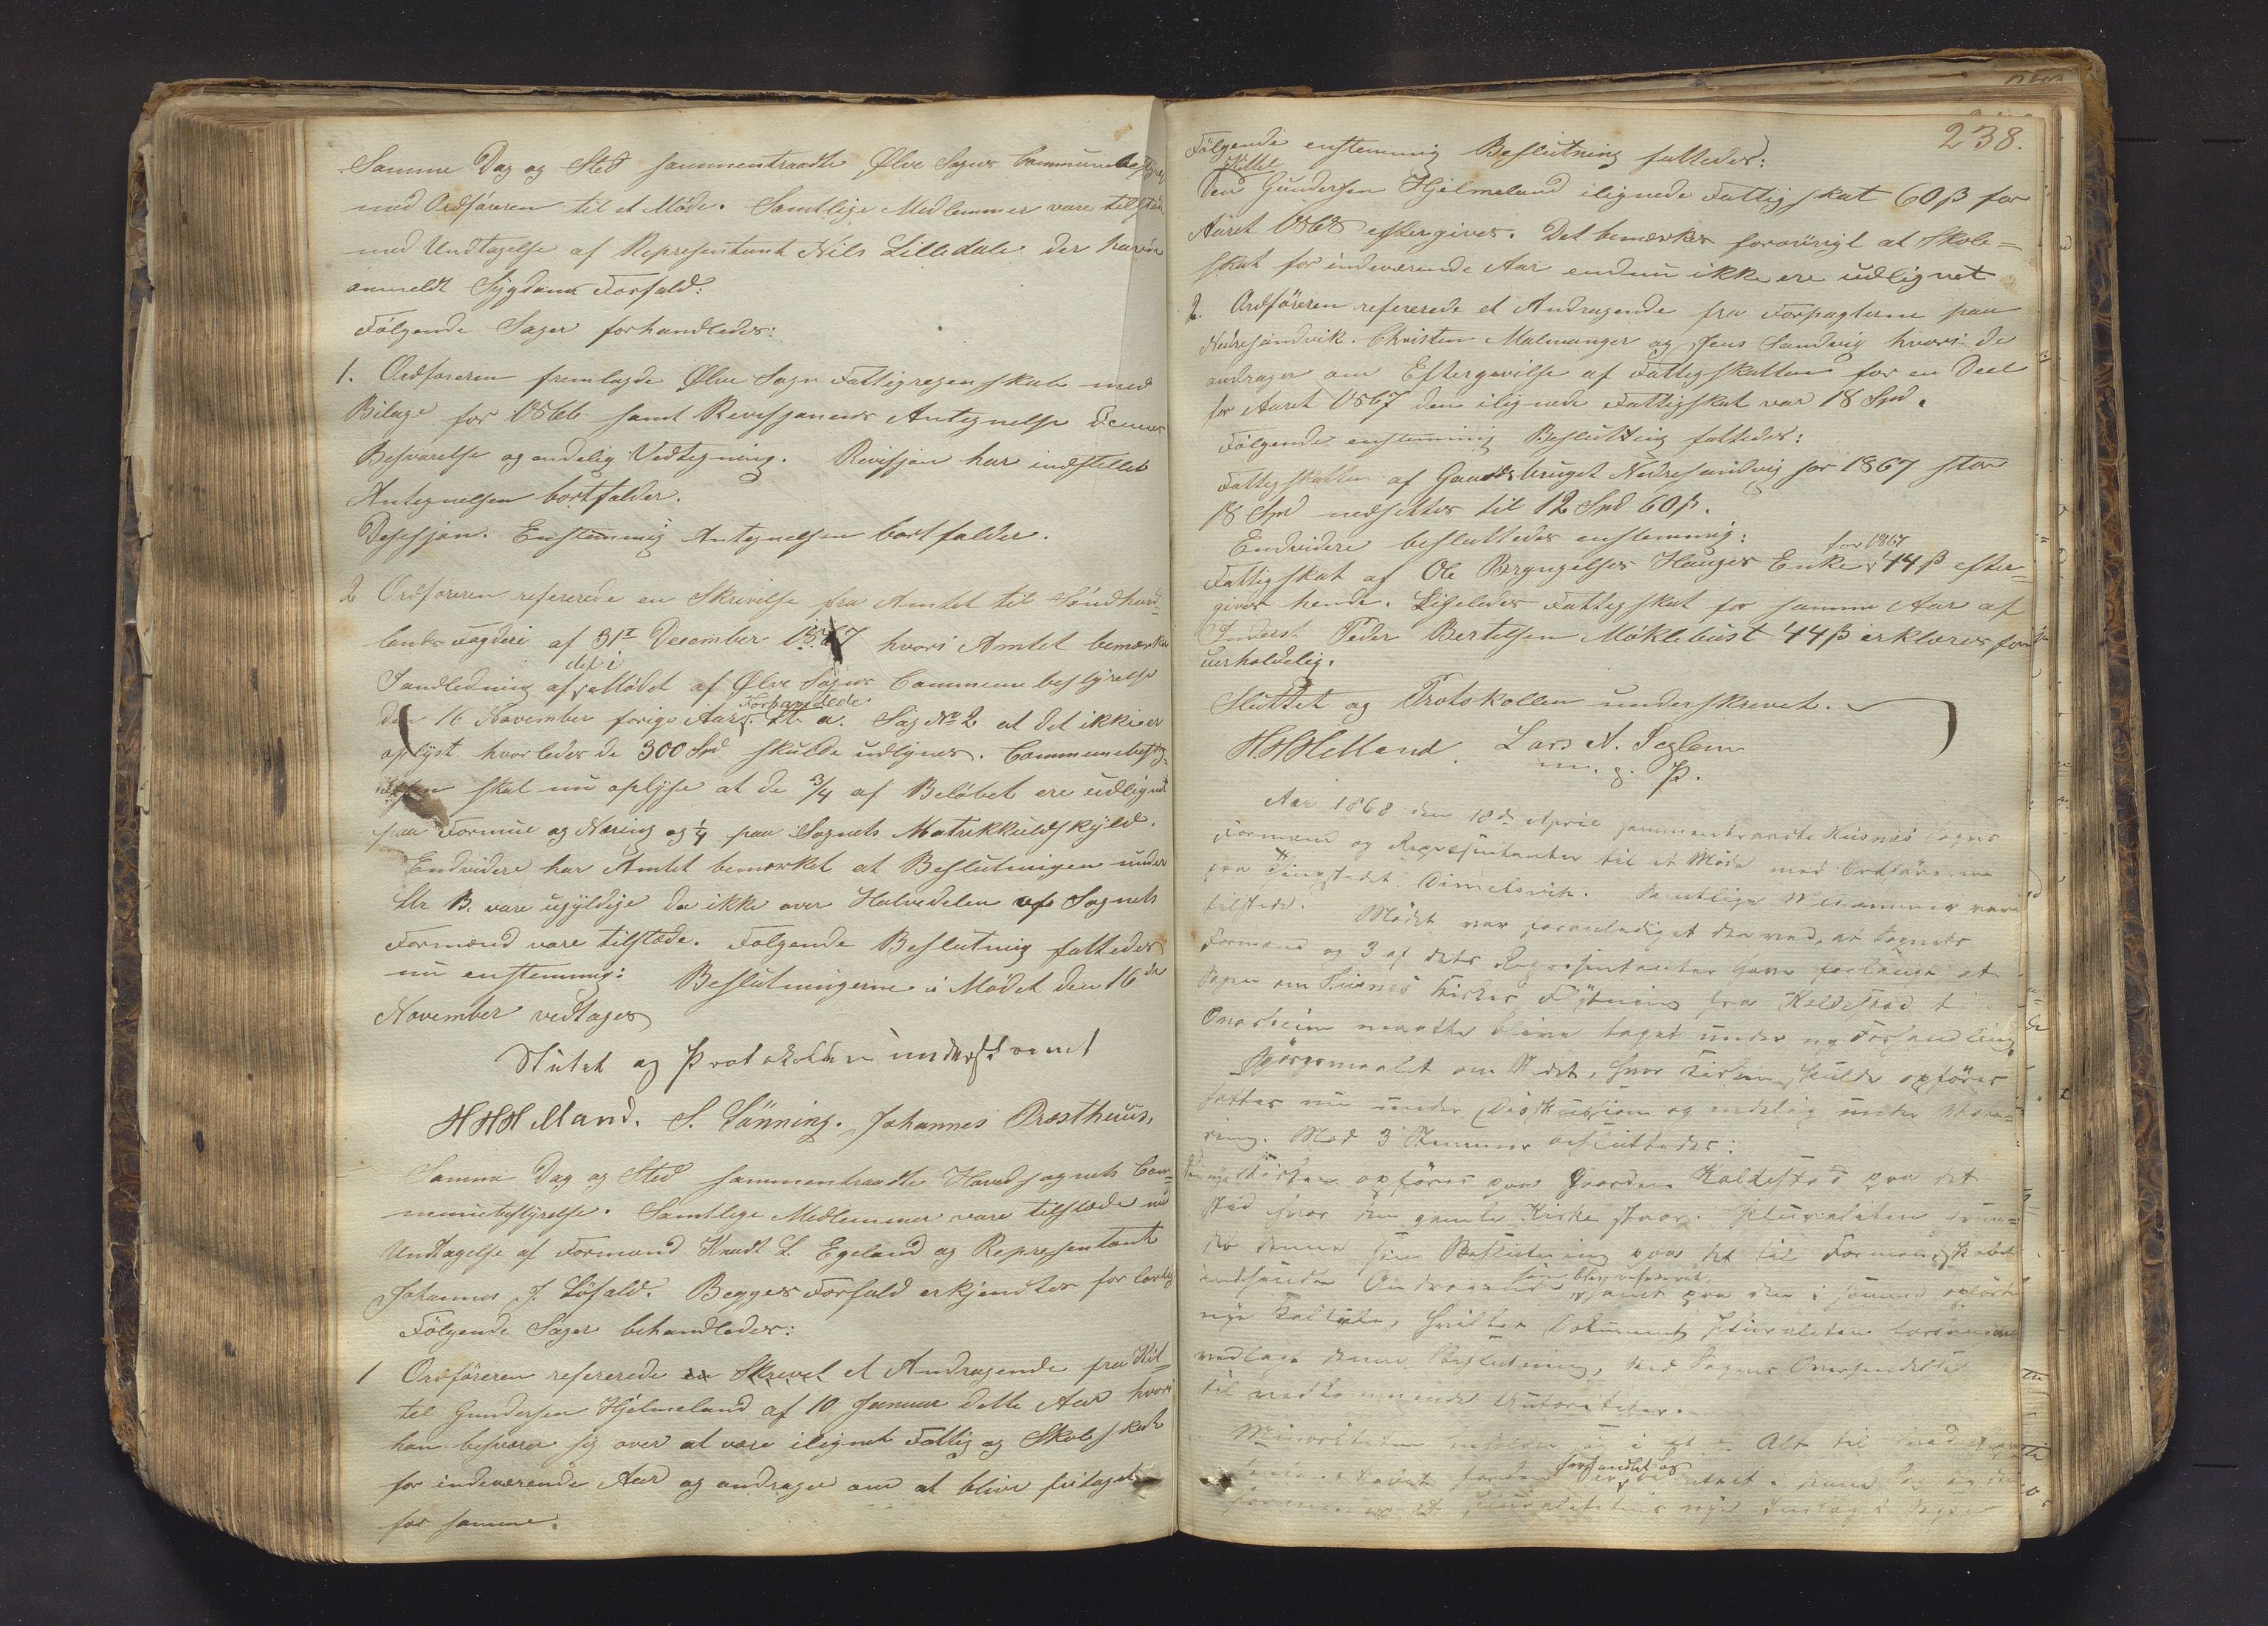 Samme Dag og Sted sammentraadte Ølve Sogns Communebestyrelse
med Ordføreren til et Møde. Samtlige Medlemmer vare tilstede
med Undtagelse af Repræsentant Nils Lilledale der havde
anmeldt Sygdoms Forfald.
Følgende Sager forhandledes:
1. Ordføreren fremlagde Ølve Sogn Fattigregenskab med
Bilage for 1866 samt Revisjonens Antegnelse Dennes
Besvarelse og endelig Vedtegning. Revisjon har indstillet
Antegnelsen bortfalder.
Desisjon. Enstemmig Antegnelsen bortfalder.
2 Ordføreren refererede en Skrivelse fra Amtet til Søndhord-
lands Fogderi af 31t Desember 1867 hvori Amtet bemærker
det i
I andledning af Mødet af Ølve Sogns Commune bestyrelse
Forhandlede
den 16 November forige Aar Lit. a. Sag No 2 at det ikke er
oplyst hvorledes de 300 Spd skulde udlignes. Communebesty-
relsen skal nu oplyse at de 3/4 af Beløbet ere udlignet
paa Formue og Næring og 1/4 paa Sognets Matrikkulskyld.
Endvidere har Amtet bemærket at Beslutningen under
Ltr B. vare ugyldige da ikke over Halvedelen af Sognets
Formænd vare tilstæde. Følgende Beslutning fattedes
nu enstemmig: Beslutningerne i Mødet den 16de
November vedtages
Slutet og Protokollen underskrevet
H H Helland. S. Sønning. Johannes Præsthuus.
Samme Dag og Sted sammentraadte Hovedsognets Com-
munebestyrelse. Samtlige Medlemmer vare tilstæde med
Undtagelse af Formand Knudt L. Egeland og Representant
Johannes J. Løfald. Begges Forfald erkjendtes for lovlig
Følgende Sager behandledes:
1 Ordføreren refererede en Skrevet et Andragende fra Kit-
tel Gundersen Hjelmeland af 10 Januar dette Aar hvori
han besværer sig over at være ilignet Fattig og Skoleskat
for indeværende Aar og andrager om at blive fritaget
for samme.
238.
Følgende enstemmig Beslutning fattedes:
Kittel
Den Gundersen Hjelmeland ilignede Fattigskat 60 ß for
Aaret 1868 eftergives. Det bemærkes forøvrigt at Skole-
skat for indeværende Aar endnu ikke ere udlignet
2. Ordføreren refererede et Andragende fra Forpagterne paa
Nedresandvik. Christen Malmanger og Jens Sandvig hvori de
andrager om Eftergivelse af Fattigskatten for en Deel
for Aaret 1867 den ilignede Fattigskat var 18 Spd.
Følgende enstemmig Beslutning fattedes:
Fattigskatten af Gaardsbruget Nedresandvig for 1867 stor
18 Spd nedsettes til 12 Spd 60 ß.
Endvidere besluttedes enstemmig:
for 1867
Fattigskat af Ole Bryngelses Hauges Enke 44 ß efter-
gives hende. Ligeledes Fattigskat for samme Aar af
Inderst Peder Bertelsen Møklebust 44 ß erklæres for
uerholdelig.
Sluttet og Protokollen underskrevet.
H. H Helland. Lars N. Teglem
m. g. P.
Aar 1868 den 18de April sammentraadte Kusnes Sogns
Formænd og Representanter til et Møde med Ordføreren
paa Thingstedet Dimelsvik. Samtlige Medlemmer vare
tilstede. Mødet var foranlediget derved, at Sognets
Formænd og 3 af dets Representanter have forlangt at
Sagen om Kirkes Flytning fra Kaldestad til
Onarheim maatte blive taget under ny Forhandling
Spørgsmaalet om Stedet, hvor Kirken skulde opføres
sattes nu under Diskusjon og endelig under Votering.
Mod 3 Stemmer besluttedes:
Den nye Kirke opføres paa Gaarden Kaldestad paa det
Sted hvor den gamle Kirke staar. Pluraliteten grun-
der denne sin Beslutning paa det til Formandskabet
som blev refereret
indsendte Andragende, samt paa den i samme opførte
nye Taltyde, hvilket Dokument Pluraliteten
vedlagt denne Beslutning, ved Sagens Oversendelse
til vedkommende Autoriteter.
Minoriteten i et og Alt til hvad
forhandlet og
denne Sag og den
Pluralitetens nye i Sagen